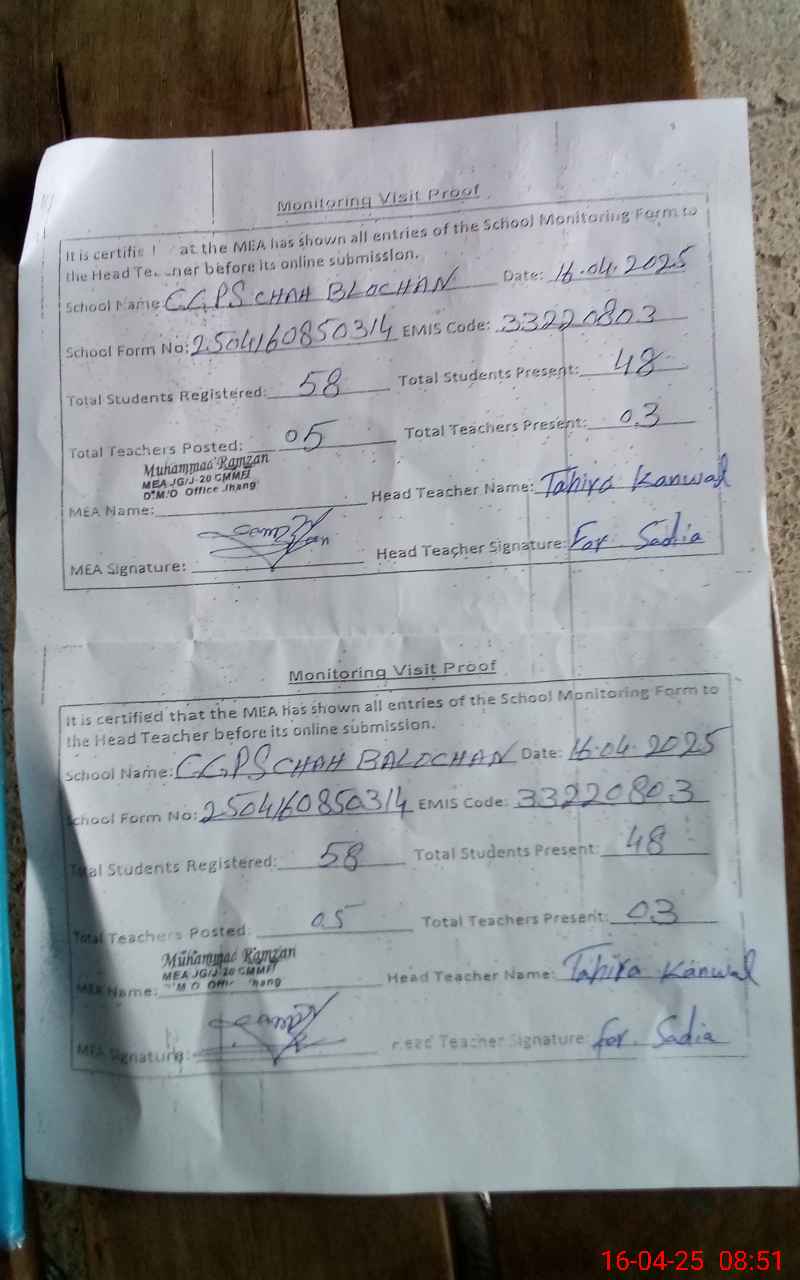 Monitoring Visit Proof
It is certifie at the MEA has shown all entries of the School Monitoring Form to
the Head Te ner before its online submission.
School Name: GGPS CHAH BLOCHAN Date: 16.04.2025
School Form No: 2504160850314 EMIS Code: 33220803
Total Students Registered: 58 Total Students Present: 48
Total Teachers Posted: 05 Total Teachers Present: 03
Muhammad Ramzan
MEA JG/J-20 CMMFI
D.M.O Office Jhang
MEA Name: Head Teacher Name: Tahira Kanwal
MEA Signature: Head Teacher Signature: For Sadia
Monitoring Visit Proof
It is certified that the MEA has shown all entries of the School Monitoring Form to
the Head Teacher before its online submission.
School Name: GGPS CHAH BALOCHAN Date: 16.04.2025
School Form No: 2504160850314 EMIS Code: 33220803
Total Students Registered: 58 Total Students Present: 48
Total Teachers Posted: 05 Total Teachers Present: 03
Muhammad Ramzan
MEA JG/J-20 CMMFI
M.O Offi hang
MEA Name: Head Teacher Name: Tahira Kanwal
MEA Signature: Head Teacher Signature: For Sadia
16-04-25 08:51